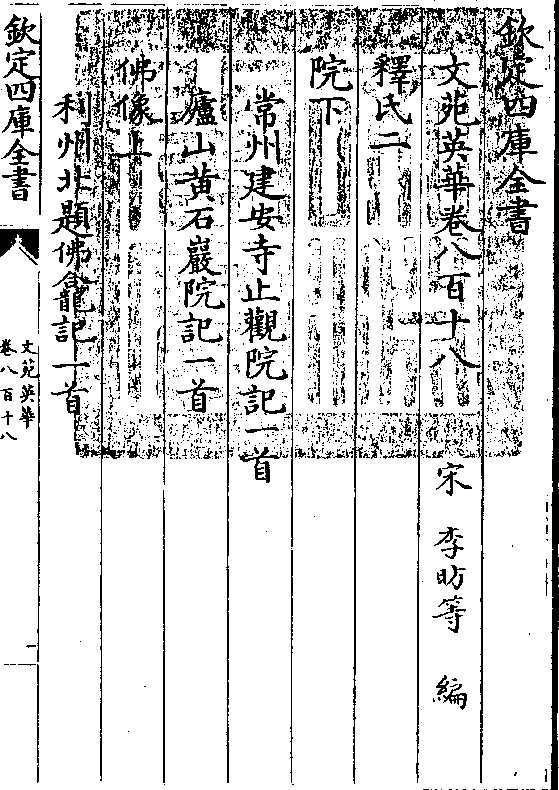 欽定四庫全書
文苑英華卷八百十八
宋 李昉等 編
釋氏二
院下
常州建安寺止觀院記一首
廬山黃石巖院記一首
佛像上
利州北題佛龕記一首
欽定四庫全書
文苑英華
卷八百十八
一